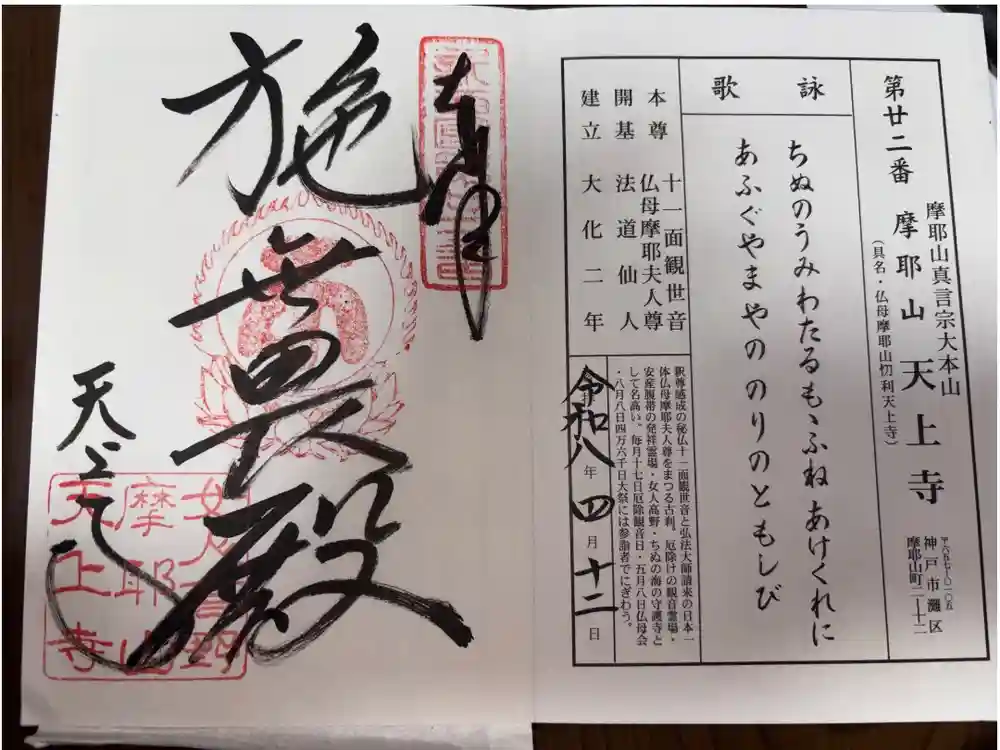 第廿二番 摩耶山 天上寺
摩耶山真言宗大本山
(具名・仏母摩耶山忉利天上寺)
〒六五七-〇一〇五
神戸市灘区
摩耶山町二-十二
詠歌
ちぬのうみわたるもゝふねあけくれに
あふぐやまやの のりのともしび
本尊 十一面観世音
仏母摩耶夫人尊
開基 法道仙人
建立 大化二年
釈尊感成の秘仏十一面観世音と弘法大師請来の日本一
体仏母摩耶夫人尊をまつる古刹。厄除けの観音霊場・
安産腹帯の発祥霊場・女人高野・ちぬの海の守護寺と
して名高い。毎月十七日厄除観音日・五月八日仏母会
・八月八日四万六千日大祭には参詣者でにぎわう。
令和八年四月十二日
奉拝
施無畏殿
天上寺
女人高野
摩耶山
天上寺